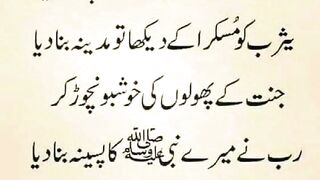 یثرب کو مُسکرا کے دیکھا تو مدینہ بنا دیا
جنت کے پھولوں کی خوشبو نچوڑ کر
رب نے میرے نبی ﷺ کا پسینہ بنا دیا